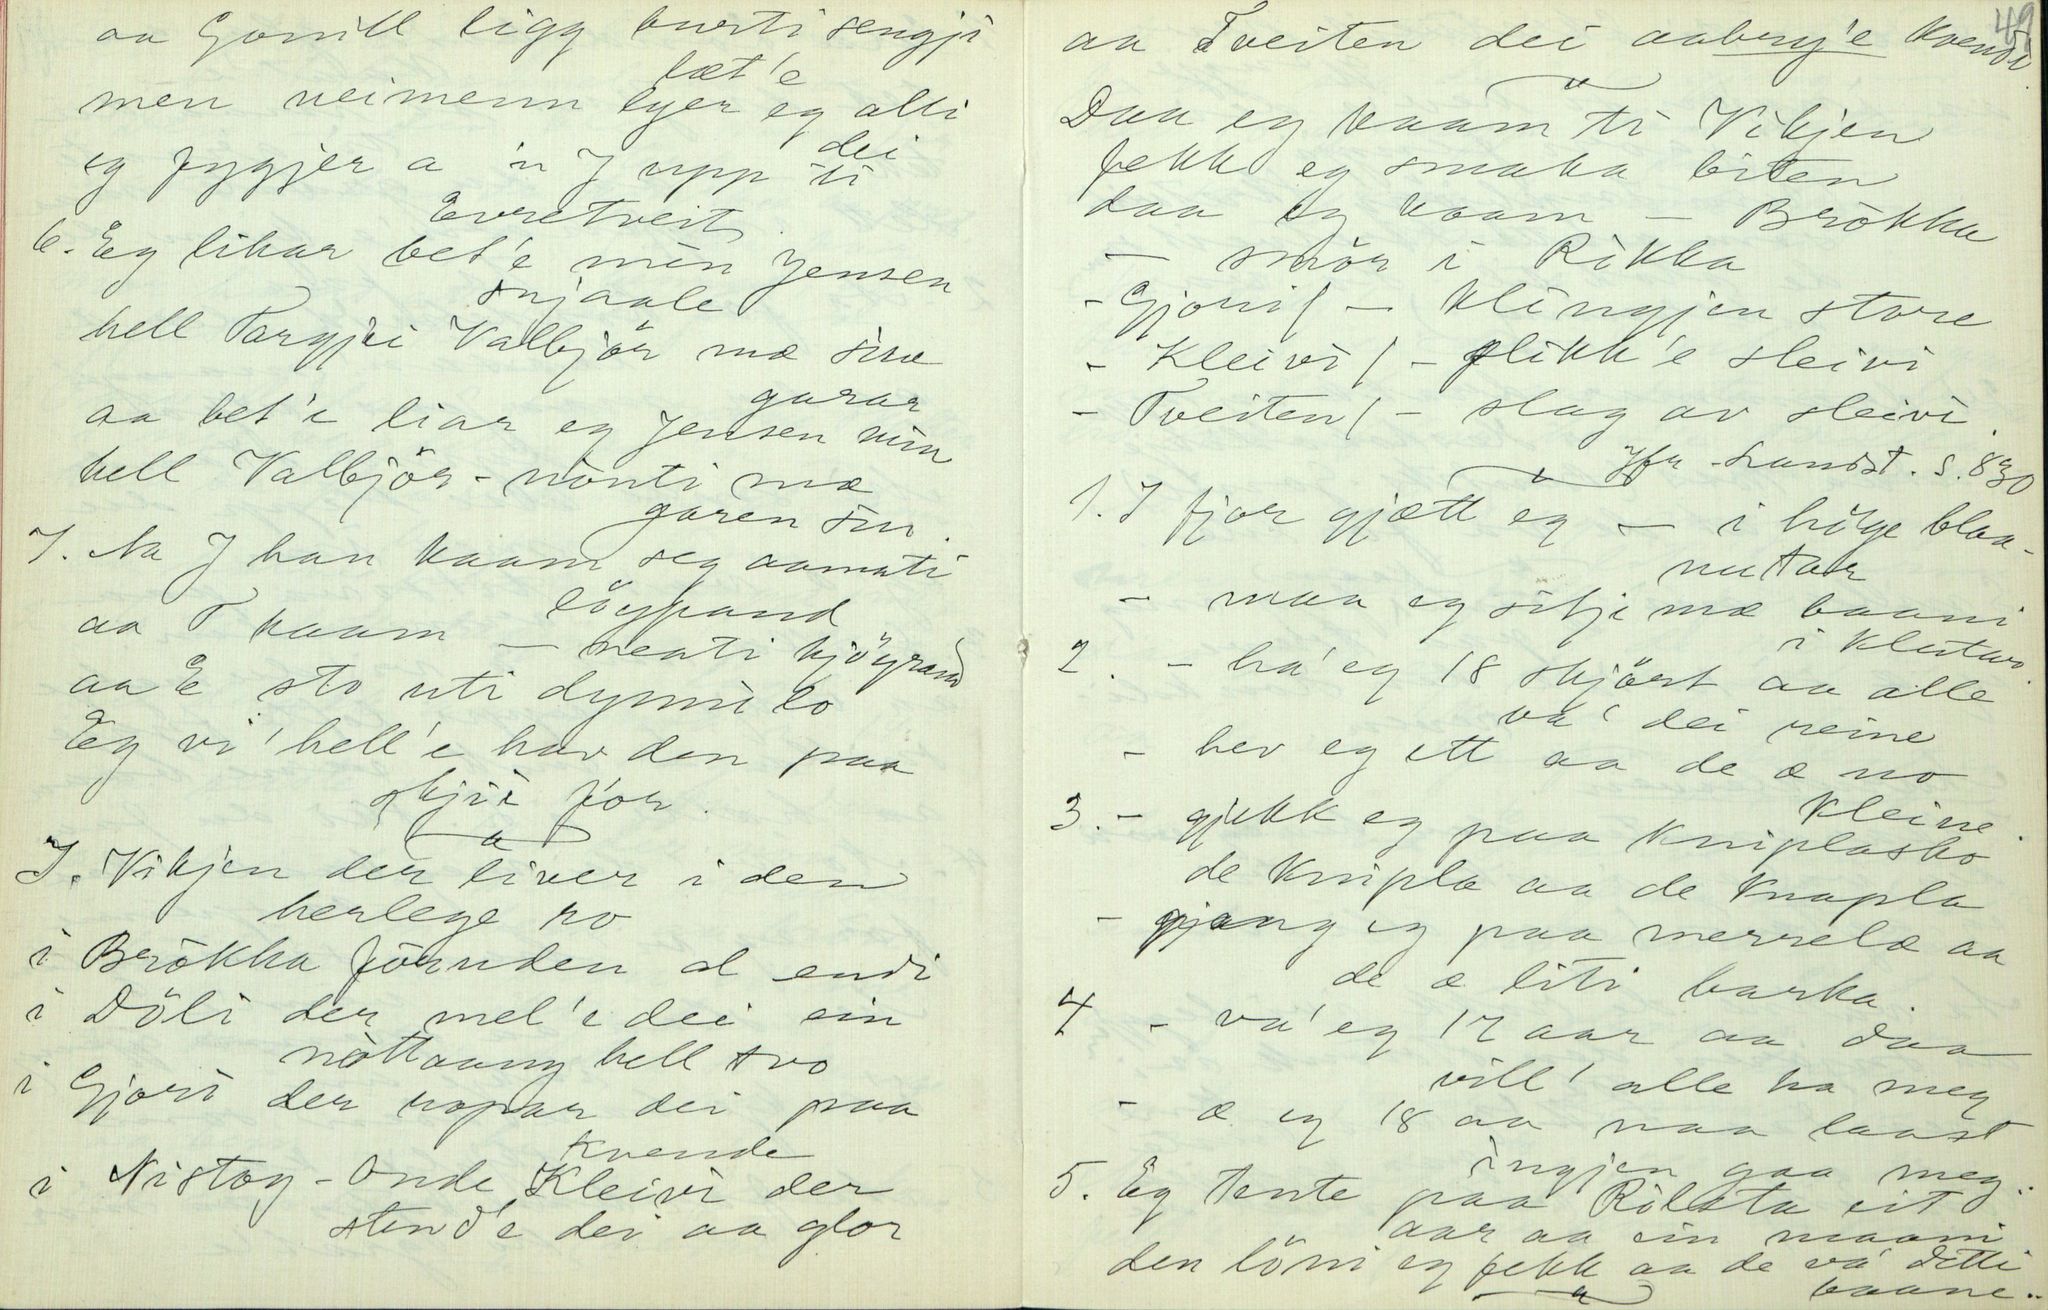 aa Gonill ligg burti sengji
men neimenn lyer eg alli
læt'e
eg fygjer a 'n J upp ti
dei
Evretveit.
6. Eg likar bet'e min Jensen
snjaale
hell Targjei Valbjör mæ sine
garar
aa bet'e liar eg Jensen min
hell Valbjör-nonti mæ
garen sin.
7. Aa J han kaam seg aamati
löypand
aa T kaam — neati kjöyrand
aa E sto uti dynni lo
Eg vi' hell'e hav den paa
skjii for.
J. Vikjen der liver i den
herlege ro
i Brökka förnden al endi
i Döli der mel'e dei ein
nòttaang hell tvo
i Gjori der ropar dei paa
kvende
i Nistog-Onde Kleivi der
stend'e dei aa glor
49
aa Tveiten dei aaberg'e kvende.
Daa eg kaam ti Vikjen
fekk eg smaka biten
daa eg kaam — Brökka
— smör i Rikka
- Gjori/ — klingjen store
- Kleivi/ — slikk'e sleivi
- Tveiten/ — slag av sleivi.
Jfr. Landst. S. 830
1. I fjor gjætt eg — i höge blaa-
nutar
- maa eg sitje mæ baani
i klutar.
2. - ha' eg 18 skjört aa alle
va' dei reine
- hev eg ett aa de æ no
kleine.
3. - gjekk eg paa kniplasko
de knipla aa de knapla
- gjeng eg paa merrelæ aa
de æ liti barka.
4 - va' eg 17 aar aa daa
vill' alle ha meg
- æ eg 18 aa naa laast
ingjen gaa meg.
5. Eg tente paa Rölsta eit
aar aa ein maani
den löni eg fekk aa de va' detti
baane.